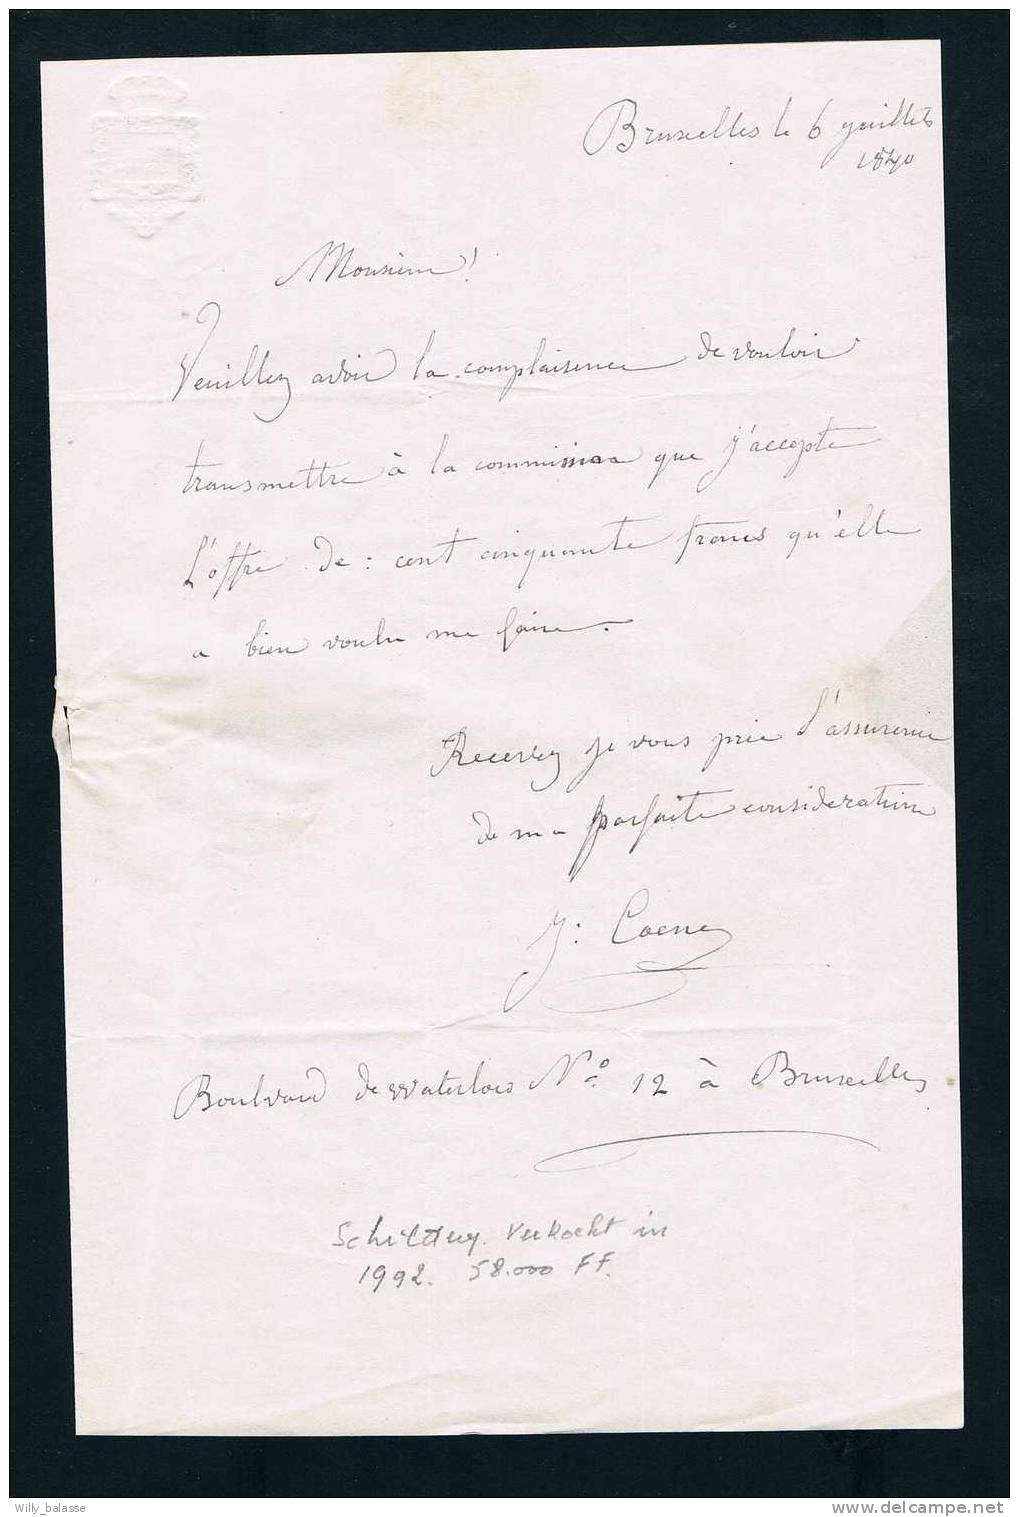 Bruxelles le 6 juillets
1840
Monsieur!
Veuillez avoir la complaisence de vouloir
transmettre à la commission que j'accepte
l'offre de : cent cinquante francs qu'elle
a bien voulu me faire.
Recevez je vous prie l'assurence
de ma parfaite consideration
J: Coene
Boulvard de Waterloo No. 12 à Bruxelles
Schildery. Verkocht in
1992. 58.000 FF.
Willy_balasse
delcampe.net